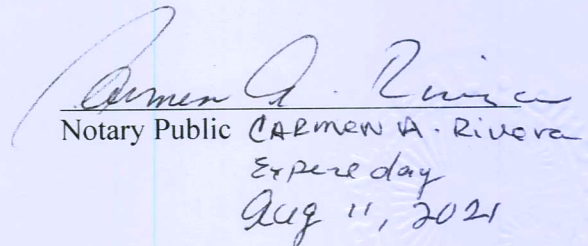 Carmen A. Rivera
Notary Public CARMEN A. Rivera
Expire day
Aug 11, 2021